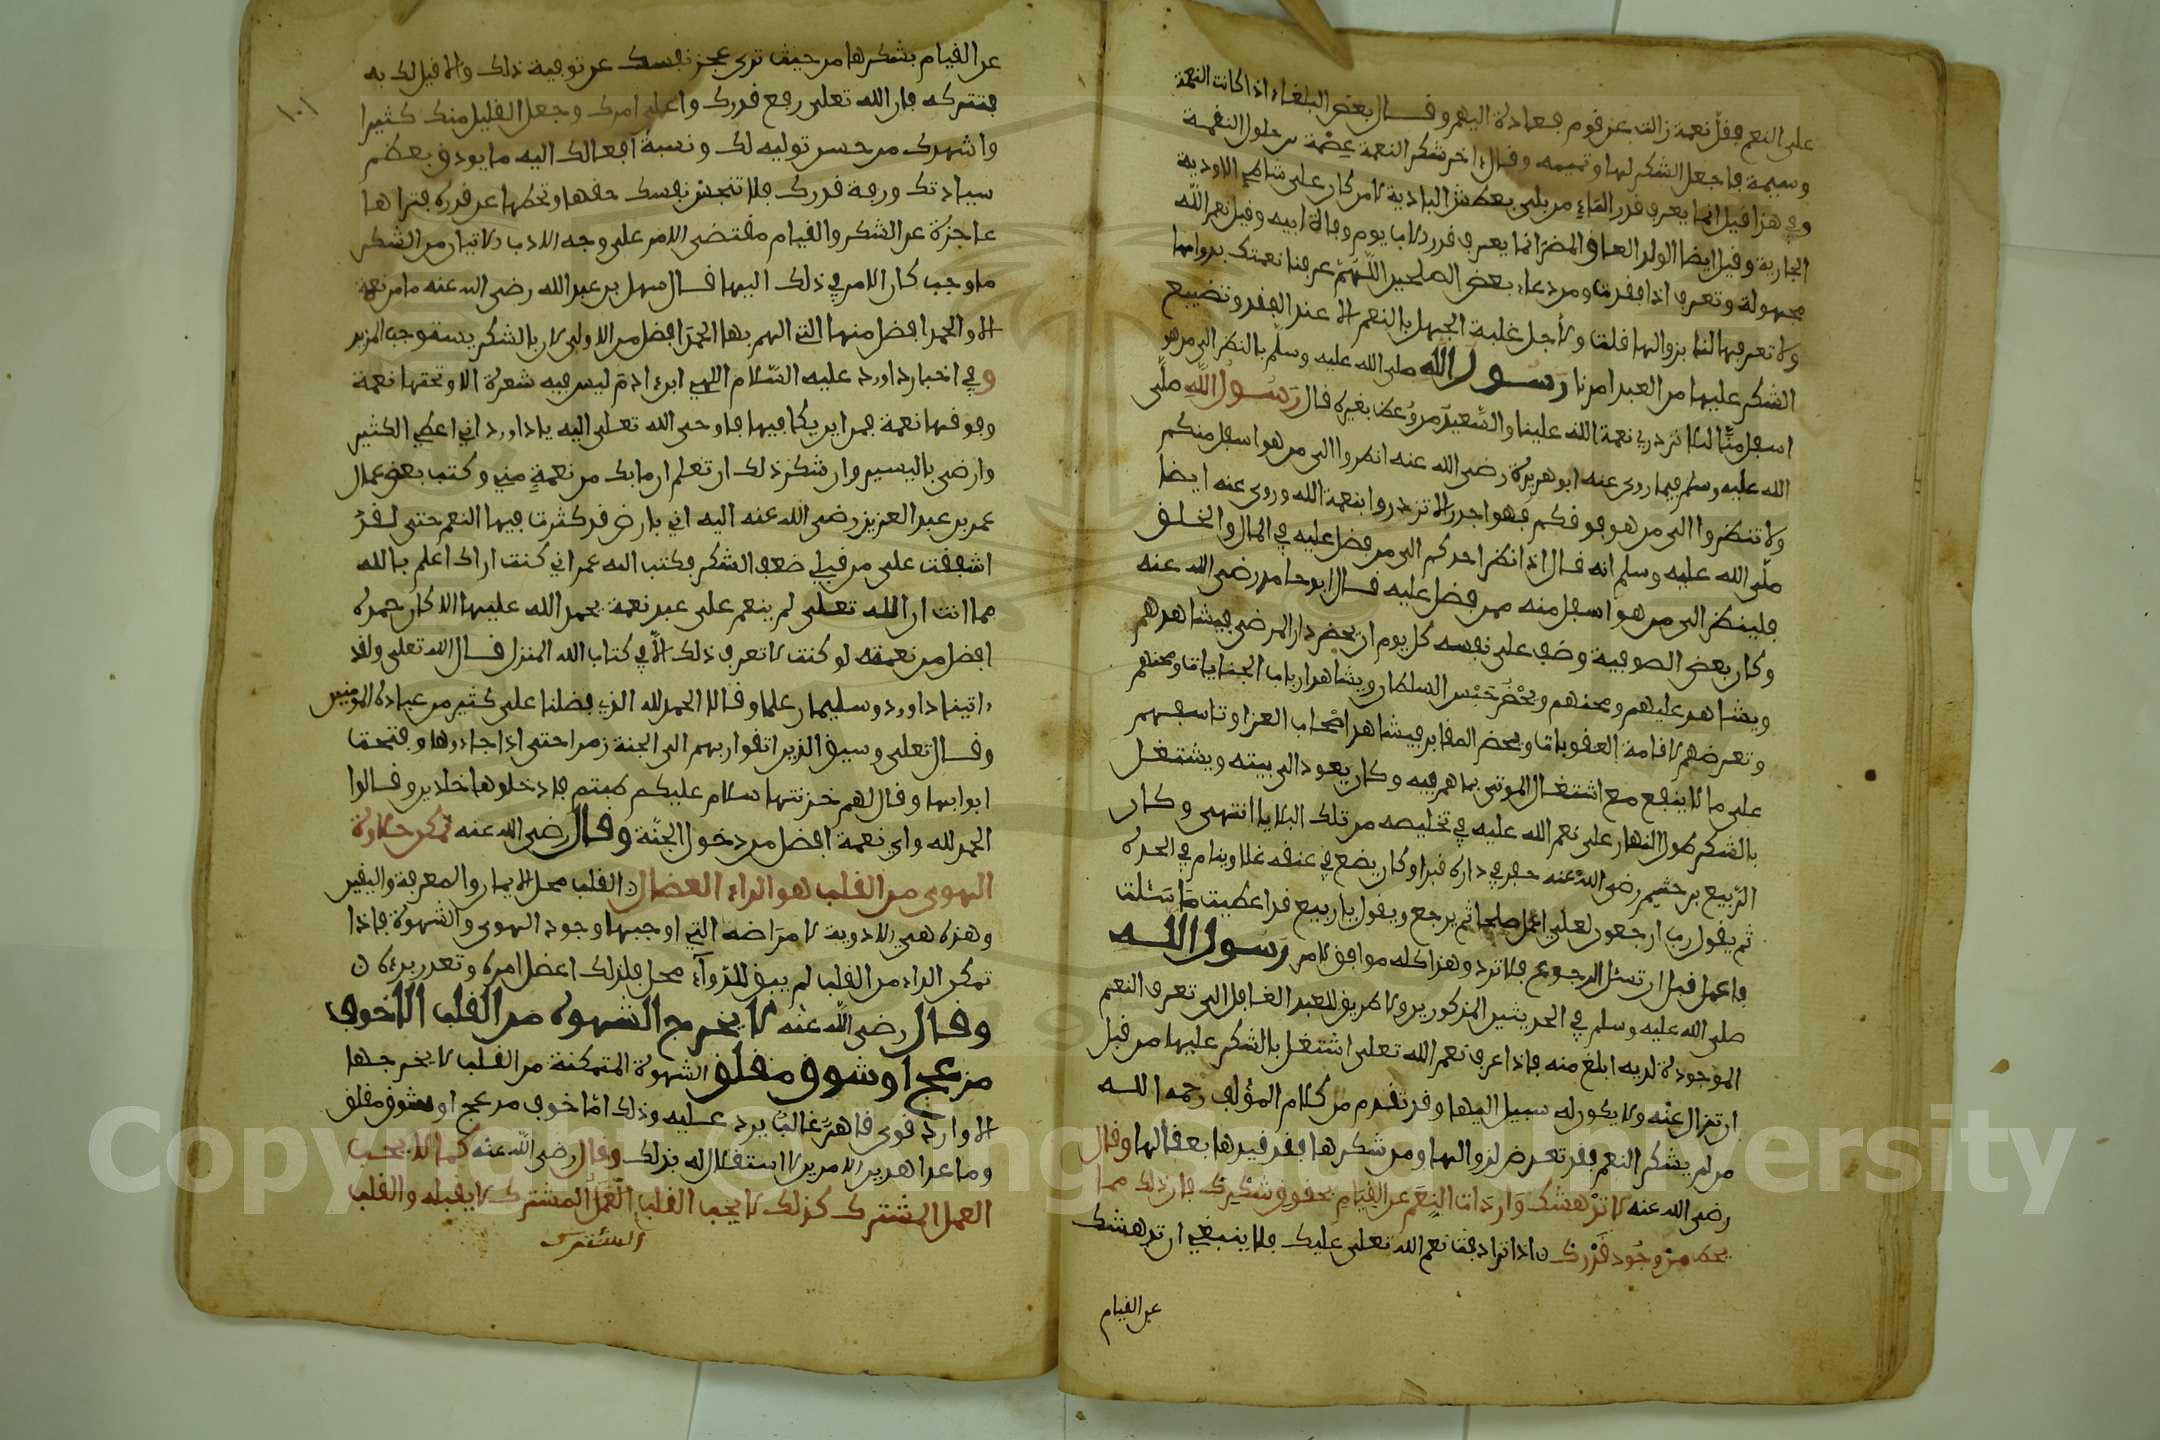 على النعم فقل نعمة زالت عن قوم فعادت اليهم وقال بعض البلغاء اذا كانت النعمة
وسيمة فاجعل الشكر لها تميمة وقال اخر شكر النعمة عصمة من حلول النقمة
وفي هذا قيل انما يعرف قدر الماء من بلي بعطش البادية لا من كان على شاطئ الاودية
الجارية وقيل ايضا الولد العاق المضر انما يعرف قدر الاب يوم وفاة ابيه وقيل نعم الله
مجهولة وتعرف اذا فقدت ومن دعاء بعض الصلحين اللهم عرفنا نعمتك بدوامها
ولا تعرفها لنا بزوالها قلت ولأجل غلبة الجهل بالنعم الا عند الفقد وتضييع
الشكر عليها من العبد امرنا رسول الله صلى الله عليه وسلم بالنظر الى من هو
اسفل منا لئلا نزدري نعمة الله علينا والسعيد من وعظ بغيره قال رسول الله صلى
الله عليه وسلم فيما روى عنه ابو هريرة رضي الله عنه انظروا الى من هو اسفل منكم
ولا تنظروا الى من هو فوقكم فهو اجدر الا تزدروا بنعمة الله وروى عنه ايضا
صلى الله عليه وسلم انه قال اذا نظر احدكم الى من فضل عليه في المال والخلق
فلينظر الى من هو اسفل منه ممن فضل عليه قال ابو حامد رضي الله عنه
وكان بعض الصوفية وظف على نفسه كل يوم ان يحضر دار المرضى فيشاهدهم
ويشاهد عليهم ومحنهم ويحضر حبس السلطان ويشاهد ارباب الجنايات ومحنهم
وتعرضهم لاقامة العقوبات ويحضر المقابر فيشاهد اصحاب العزا وتاسفهم
على ما لا ينفع مع اشتغال الموتى بما هم فيه وكان يعود الى بيته ويشتغل
بالشكر طول النهار على نعم الله عليه في تخليصه من تلك البلايا انتهى وكان
الربيع بن خثيم رضي الله عنه حفر في داره قبرا وكان يضع في عنقه غلا وينام في لحده
ثم يقول رب ارجعون لعلي اعمل صلحا ثم يرجع ويقول يا ربيع قد اعطيت ما سئلت
فاعمل قبل ان تسئل الرجوع فلا ترد وهذا كله موافق لامر رسول الله
صلى الله عليه وسلم في الحديثين المذكورين ولا طريق للعبد الغافل الى تعرف النعم
الموجودة لديه ابلغ منه فاذا عرف نعم الله تعلى اشتغل بالشكر عليها من قبل
ان تزال عنه ولا يكون له سبيل اليها وقد تقدم من كلام المؤلف رحمه الله
من لم يشكر النعم فقد تعرض لزوالها ومن شكرها فقد قيدها بعقالها وقال
رضي الله عنه لا تدهشك واردات النعم عن القيام بحقوق شكرك فان ذلك مما
يحط من وجود قدرك ن اذا ترادفت نعم الله تعلى عليك فلا ينبغي ان تدهشك
عن القيام
١٠١
عن القيام بشكرها من حيث ترى عجز نفسك عن توفية ذلك والا قبل لك به
فتتركه فان الله تعلى رفع قدرك واعلى امرك وجعل القليل منك كثيرا
واشهدك من حسن توليه لك ونسبة افعالك اليه ما يوذن بعظم
سيادتك ورفعة قدرك فلا تبخس نفسك حقها وتحطها عن قدره فتراها
عاجزة عن الشكر والقيام مقتضى الامر على وجه الادب ولا تيان من الشكر
ما وجب كان الامر في ذلك اليها قال سهل بن عبد الله رضي الله عنه ما من نعمة
الا والحمد افضل منها التي الهم بها الحمد افضل من الاولى لان بالشكر يستوجب المزيد
وفي اخبار داورد عليه السلام الهي ابن ادم ليس فيه شعرة الا وتحتها نعمة
وفوقها نعمة فمن اين يكافيها فاوحى الله تعلى اليه يا داورد اني اعطي الكثير
وارضى باليسير وان شكر ذلك ان تعلم ان ما بك من نعمة مني وكتب بعض عمال
عمر بن عبد العزيز رضي الله عنه اليه اني بارض قد كثرت فيها النعم حتى لقد
اشفقت على من قبلي ضعف الشكر فكتب اليه عمر اني كنت اراك اعلم بالله
مما انت ان الله تعلى لم ينعم على عبد نعمة يحمد الله عليها الا كان حمده
افضل من نعمته لو كنت لا تعرف ذلك الا في كتاب الله المنزل قال الله تعلى ولقد
اتينا داورد وسليمان علما وقالا الحمد لله الذي فضلنا على كثير من عباده المومنين
وقال تعلى وسيق الذين اتقوا ربهم الى الجنة زمرا حتى اذا جاءوها وفتحت
ابوابها وقال لهم خزنتها سلام عليكم طبتم فادخلوها خلدين وقالوا
الحمد لله واي نعمة افضل من دخول الجنة وقال رضي الله عنه تمكن حلاوة
الهوى من القلب هو الداء العضال ن القلب محل الايمان والمعرفة واليقين
وهذه هي الادوية لامراضه التي اوجبها وجود الهوى والشهوة فاذا
تمكن الداء من القلب لم يبق للدواء محل فلذلك اعضل امره وتعذر برءه ن
وقال رضي الله عنه لا يخرج الشهوة من القلب الا خوف
مزعج او شوق مقلق الشهوة المتمكنة من القلب لا يخرجها
الا وارد قوي قاهر غالب يرد عليه وذلك اما خوف مزعج او شوق مقلق
وما عدا هذين الامرين لا استقلال له بذلك وقال رضي الله عنه كما لا يحب
العمل المشترك كذلك لا يحب القلب العمل المشترك لا يقبله والقلب
المشترك
Copyright © King Saud University